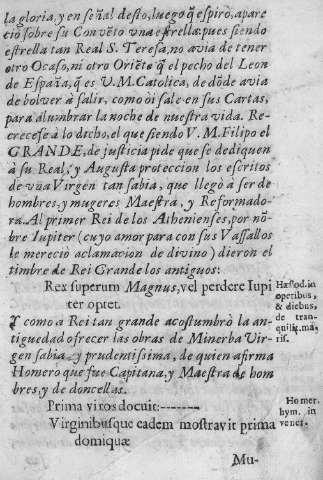 la gloria, y en señal desto, luego q̃ espirò, apare
ciò sobre su Convẽto vna estrella: pues siendo
estrella tan Real S. Teresa, no avia de tener
otro Ocaso, ni otro Oriẽte q̃ el pecho del Leon
de España, q̃ es V. M. Catolica, de dõde avia
de bolver à salir, como oi sale en sus Cartas,
para alumbrar la noche de nuestra vida. Re-
erecese à lo dicho, el que siendo V. M. Filipo el
GRANDE, de justicia pide que se dediquen
à su Real, y Augusta proteccion los escritos
de vna Virgen tan sabia, que llegò à ser de
hombres, y mugeres Maestra, y Reformado-
ra. Al primer Rei de los Athenienses, por nõ-
bre Iupiter (cuyo amor para con sus Vassallos
le mereciò aclamacion de divino) dieron el
timbre de Rei Grande los antiguos:
Rex superum Magnus, vel perdere Iupi
ter optet.
Hæsiod. in
operibus,
& diebus,
de tran-
quilit. ma,
ris.
Y como a Rei tan grande acostumbrò la an-
tiguedad ofrecer las obras de Minerba Vir-
gen sabia, y prudentissima, de quien afirma
Homero que fue Capitana, y Maestra de hom
bres, y de doncellas.
Prima viros docuit:-------
Virginibusque eadem mostravit prima
domiquæ
Homer.
hym. in
vener.
Mu-